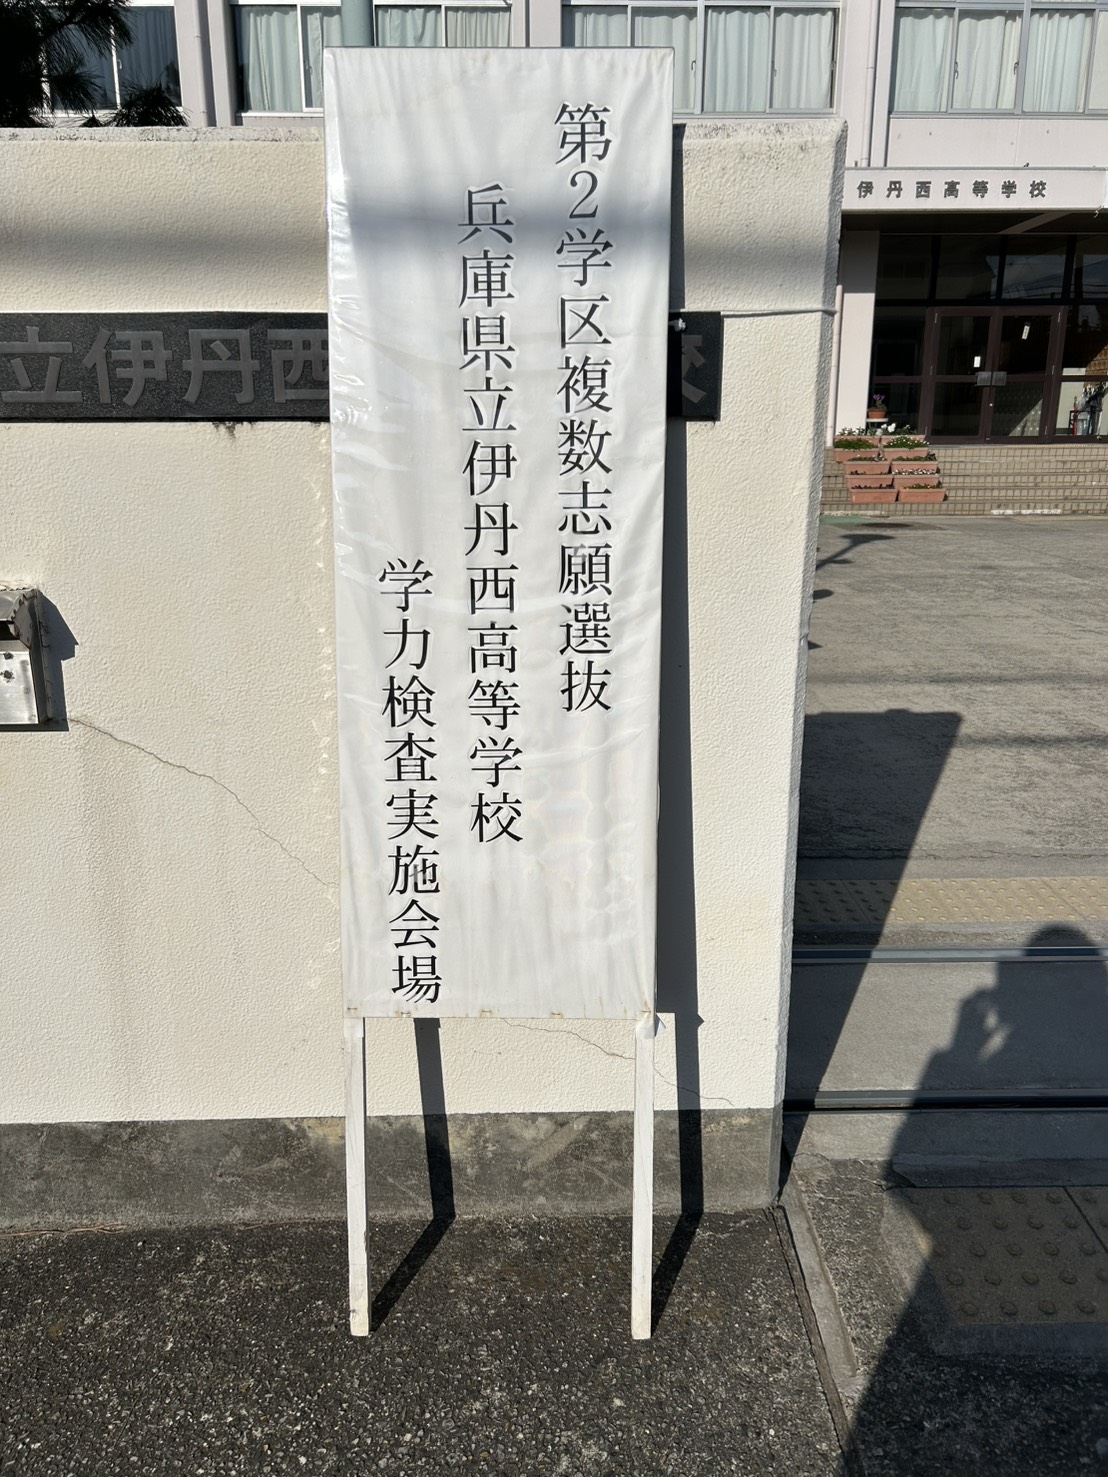 第2学区複数志願選抜
兵庫県立伊丹西高等学校
学力検査実施会場
立伊丹西
校
伊丹西高等学校